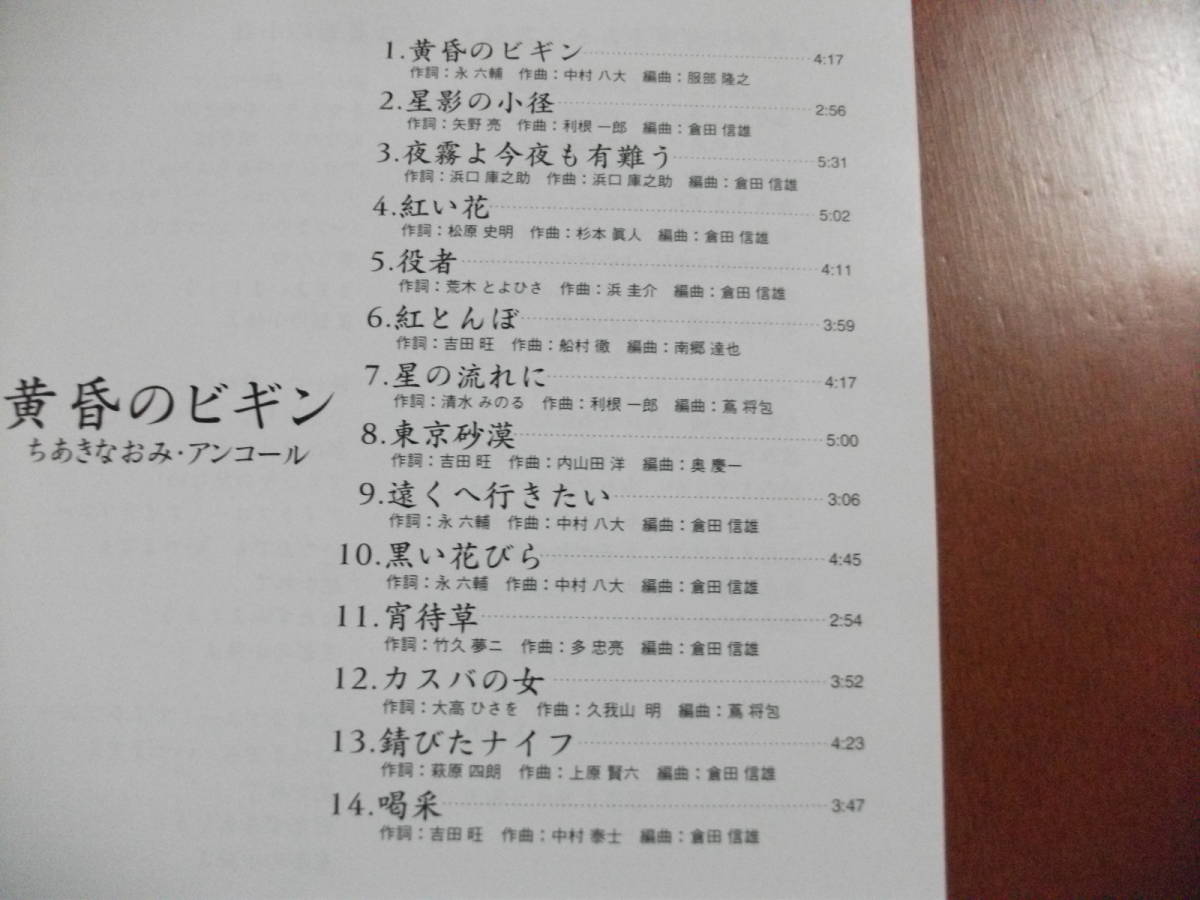 黄昏のビギン
ちあきなおみ・アンコール
1.黄昏のビギン 4:17
作詞：永 六輔 作曲：中村 八大 編曲：服部 隆之
2.星影の小径 2:56
作詞：矢野 亮 作曲：利根 一郎 編曲：倉田 信雄
3.夜霧よ今夜も有難う 5:31
作詞：浜口 庫之助 作曲：浜口 庫之助 編曲：倉田 信雄
4.紅い花 5:02
作詞：松原 史明 作曲：杉本 眞人 編曲：倉田 信雄
5.役者 4:11
作詞：荒木 とよひさ 作曲：浜 圭介 編曲：倉田 信雄
6.紅とんぼ 3:59
作詞：吉田 旺 作曲：船村 徹 編曲：南郷 達也
7.星の流れに 4:17
作詞：清水 みのる 作曲：利根 一郎 編曲：蔦 将包
8.東京砂漠 5:00
作詞：吉田 旺 作曲：内山田 洋 編曲：奥 慶一
9.遠くへ行きたい 3:06
作詞：永 六輔 作曲：中村 八大 編曲：倉田 信雄
10.黒い花びら 4:45
作詞：永 六輔 作曲：中村 八大 編曲：倉田 信雄
11.宵待草 2:54
作詞：竹久 夢二 作曲：多 忠亮 編曲：倉田 信雄
12.カスバの女 3:52
作詞：大高 ひさを 作曲：久我山 明 編曲：蔦 将包
13.錆びたナイフ 4:23
作詞：萩原 四朗 作曲：上原 賢六 編曲：倉田 信雄
14.喝采 3:47
作詞：吉田 旺 作曲：中村 泰士 編曲：倉田 信雄